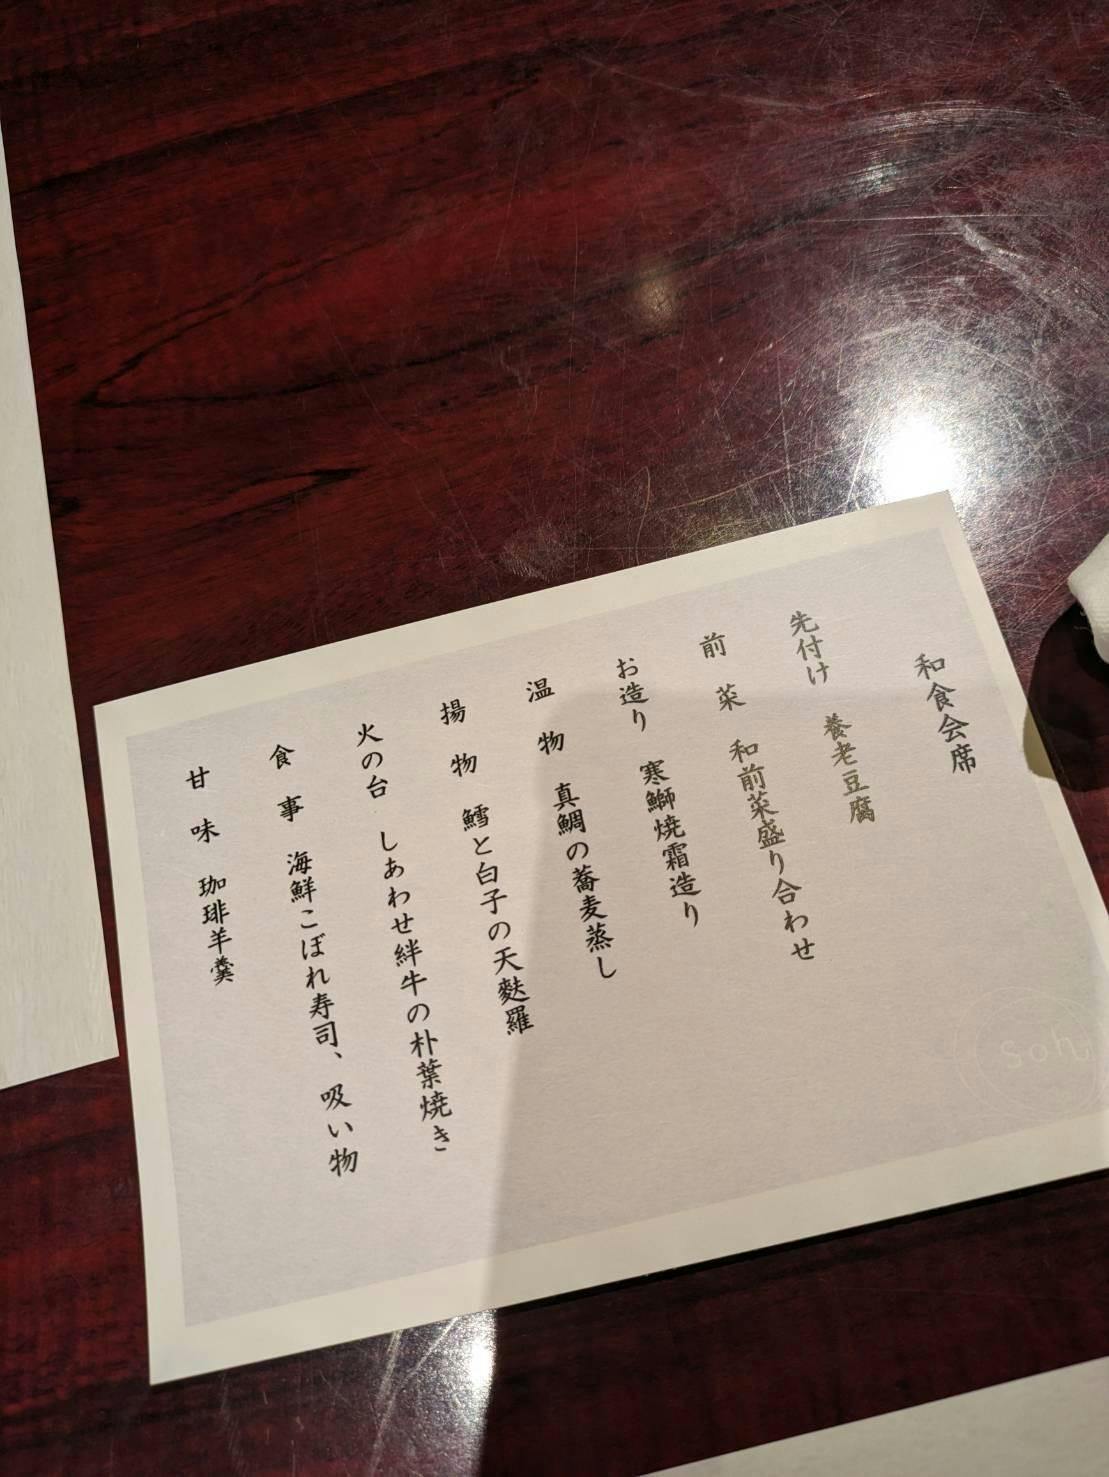 和食会席
先付け　養老豆腐
前　菜　和前菜盛り合わせ
お造り　寒鰤焼霜造り
温　物　真鯛の蕎麦蒸し
揚　物　鱈と白子の天麩羅
火の台　しあわせ絆牛の朴葉焼き
食　事　海鮮こぼれ寿司、吸い物
甘　味　珈琲羊羹